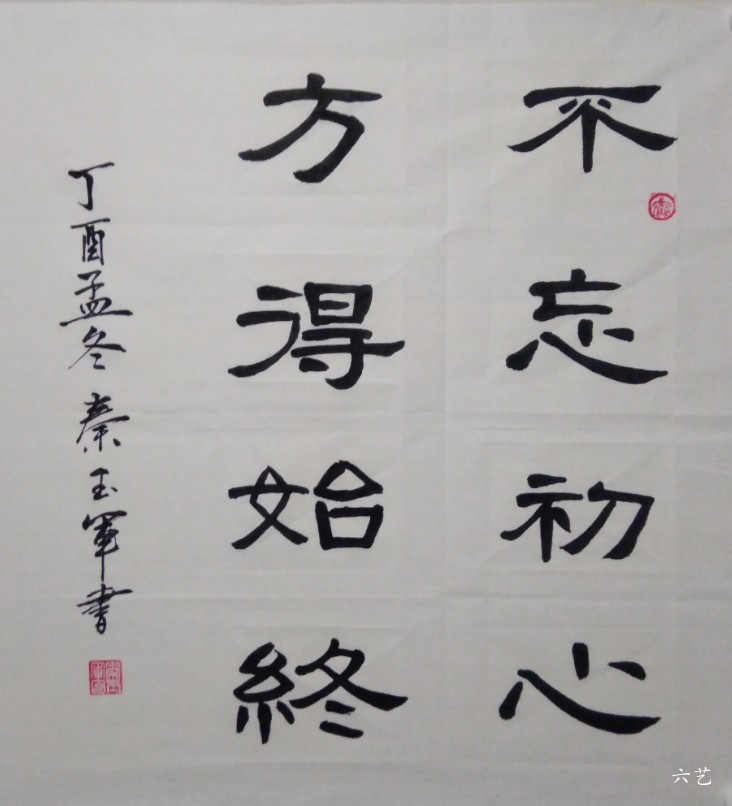 不忘初心
方得始終
丁酉孟冬 秦玉軍書
六艺